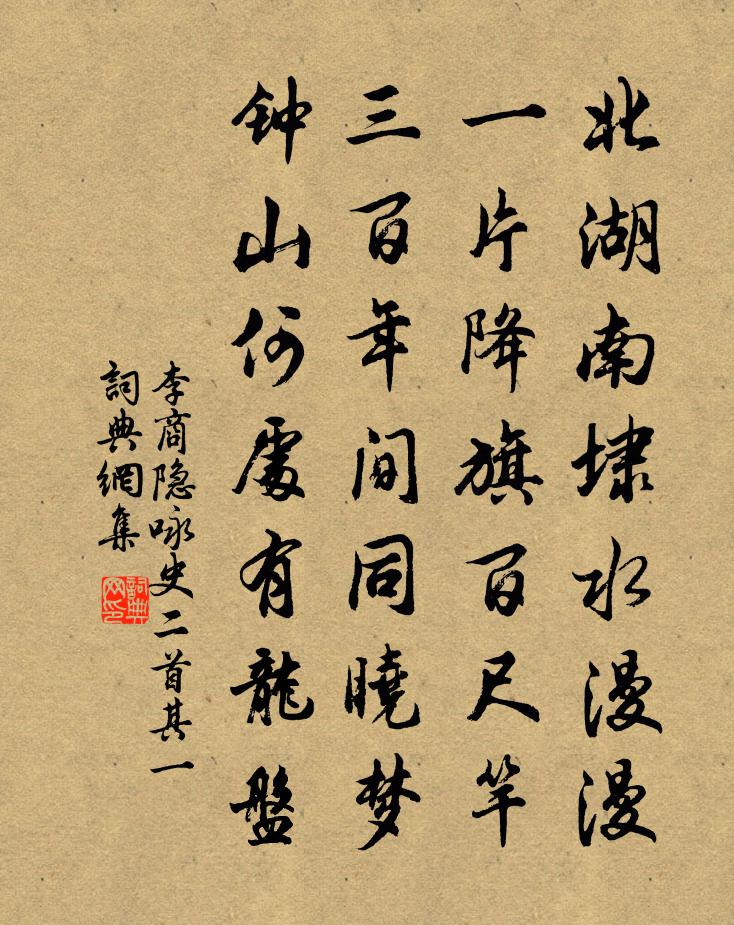 北湖南埭水漫漫
一片降旗百尺竿
三百年间同曉梦
钟山何處有龍盤
李商隐咏史二首其一
詞典網集
詞典网印